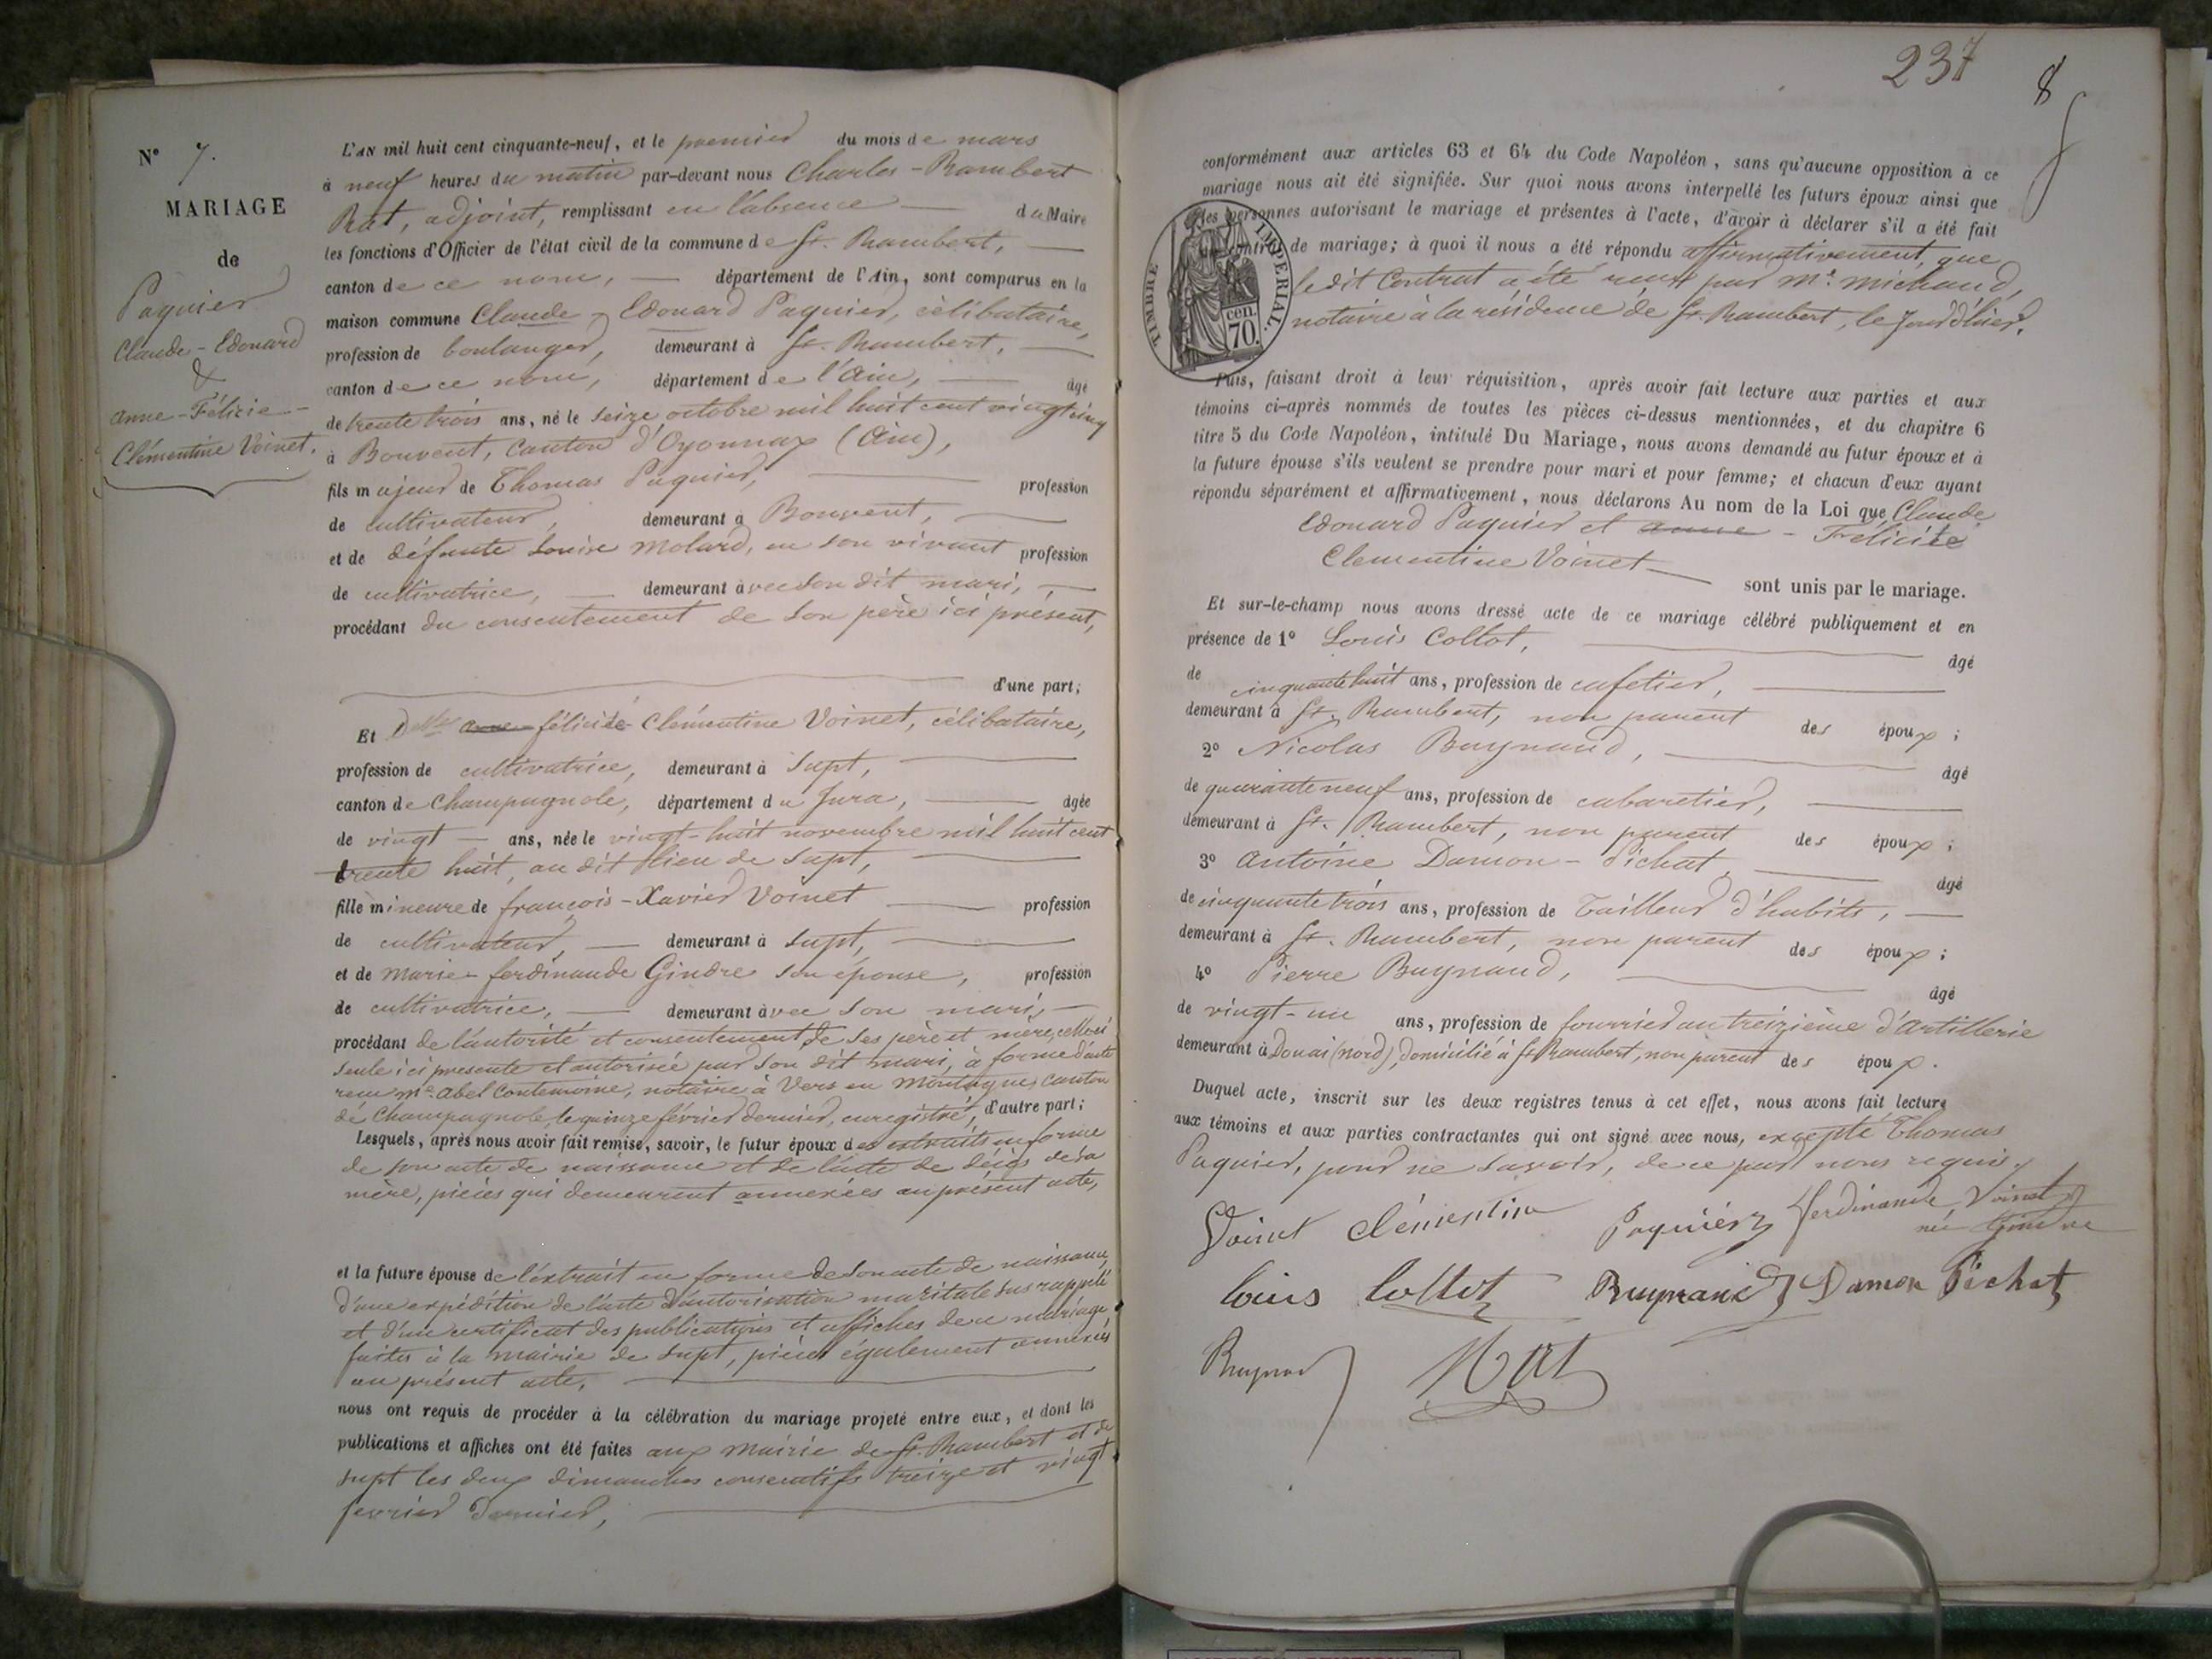 N° 7.
MARIAGE
de
Paquier
Claude-Edouard
&
anne-Félicie-
Clémentine Voinet.
L'AN mil huit cent cinquante-neuf, et le premier du mois de mars
à neuf heures du matin par-devant nous Charles-Rambert
Rat, adjoint, remplissant en l'absence du Maire
les fonctions d'Officier de l'état civil de la commune de St. Rambert,
canton de ce nom, département de l'Ain, sont comparus en la
maison commune Claude-Edouard Paquier, célibataire,
profession de boulanger, demeurant à St. Rambert,
canton de ce nom, département de l'Ain, âgé
de trente trois ans, né le seize octobre mil huit cent vingt cinq
à Bouvent, canton d'Oyonnax (Ain),
fils majeur de Thomas Paquier, profession
de cultivateur, demeurant à Bouvent,
et de défunte Louise Molard, en son vivant profession
de cultivatrice, demeurant avec son dit mari,
procédant du consentement de son père ici présent,
d'une part;
Et Dlle anne-félicité Clémentine Voinet, célibataire,
profession de cultivatrice, demeurant à Supt,
canton de Champagnole, département du Jura, âgée
de vingt ans, née le vingt-huit novembre mil huit cent
trente huit, au dit lieu de Supt,
fille mineure de françois-Xavier Voinet profession
de cultivateur, demeurant à Supt,
et de Marie-ferdinande Gindre son épouse, profession
de cultivatrice, demeurant avec son mari,
procédant de l'autorité et consentement de ses père et mère, celle ci
seule ici presente et autorisée par son dit mari, à forme d'acte
reçu Me. Abel Contemoine, notaire à Vers en Montagne, canton
de Champagnole, le quinze février dernier, enregistré, d'autre part;
Lesquels, après nous avoir fait remise, savoir, le futur époux des extraits en forme
de son acte de naissance et de l'acte de décès de sa
mère, pièces qui demeurent annexées au présent acte,
et la future épouse de l'extrait en forme de son acte de naissance,
d'une expédition de l'acte d'autorisation maritale sus rappelé
et d'un certificat des publications et affiches de ce mariage
faites à la mairie de Supt, pièces également annexées
au présent acte.
nous ont requis de procéder à la célébration du mariage projeté entre eux, et dont les
publications et affiches ont été faites aux Mairie de St. Rambert et de
Supt les deux dimanches consecutifs treize et vingt
fevrier dernier,
237
8
conformément aux articles 63 et 64 du Code Napoléon, sans qu'aucune opposition à ce
mariage nous ait été signifiée. Sur quoi nous avons interpellé les futurs époux ainsi que
les personnes autorisant le mariage et présentes à l'acte, d'avoir à déclarer s'il a été fait
contrat de mariage; à quoi il nous a été répondu affirmativement, que
le dit Contrat a été reçu par Me. Michaud,
notaire à la résidence de St. Rambert, le jour d'hier.
TIMBRE IMPERIAL.
70 cen.
Puis, faisant droit à leur réquisition, après avoir fait lecture aux parties et aux
témoins ci-après nommés de toutes les pièces ci-dessus mentionnées, et du chapitre 6
titre 5 du Code Napoléon, intitulé Du Mariage, nous avons demandé au futur époux et à
la future épouse s'ils veulent se prendre pour mari et pour femme; et chacun d'eux ayant
répondu séparément et affirmativement, nous déclarons Au nom de la Loi que Claude
Edouard Paquier et anne-Félicité
Clementine Voinet
sont unis par le mariage.
Et sur-le-champ nous avons dressé acte de ce mariage célébré publiquement et en
présence de 1° Louis Collot, âgé
de cinquante huit ans, profession de cafetier,
demeurant à St. Rambert, non parent des époux;
2° Nicolas Buynand, âgé
de quarante neuf ans, profession de cabaretier,
demeurant à St. Rambert, non parent des époux;
3° Antoine Damon-Pichat, âgé
de cinquante trois ans, profession de Tailleur d'habits,
demeurant à St. Rambert, non parent des époux;
4° Pierre Buynand, âgé
de vingt-un ans, profession de fourrier au treizième d'Artillerie
demeurant à Douai (nord), domicilié à St Rambert, non parent des époux.
Duquel acte, inscrit sur les deux registres tenus à cet effet, nous avons fait lecture
aux témoins et aux parties contractantes qui ont signé avec nous, excepté Thomas
Paquier, pour ne savoir, de ce par nous requis.
Voinet Clémentine Paquier ferdinande Voinet
née Gindre
Louis Collot Buynand Damon Pichat
Buynand Rat